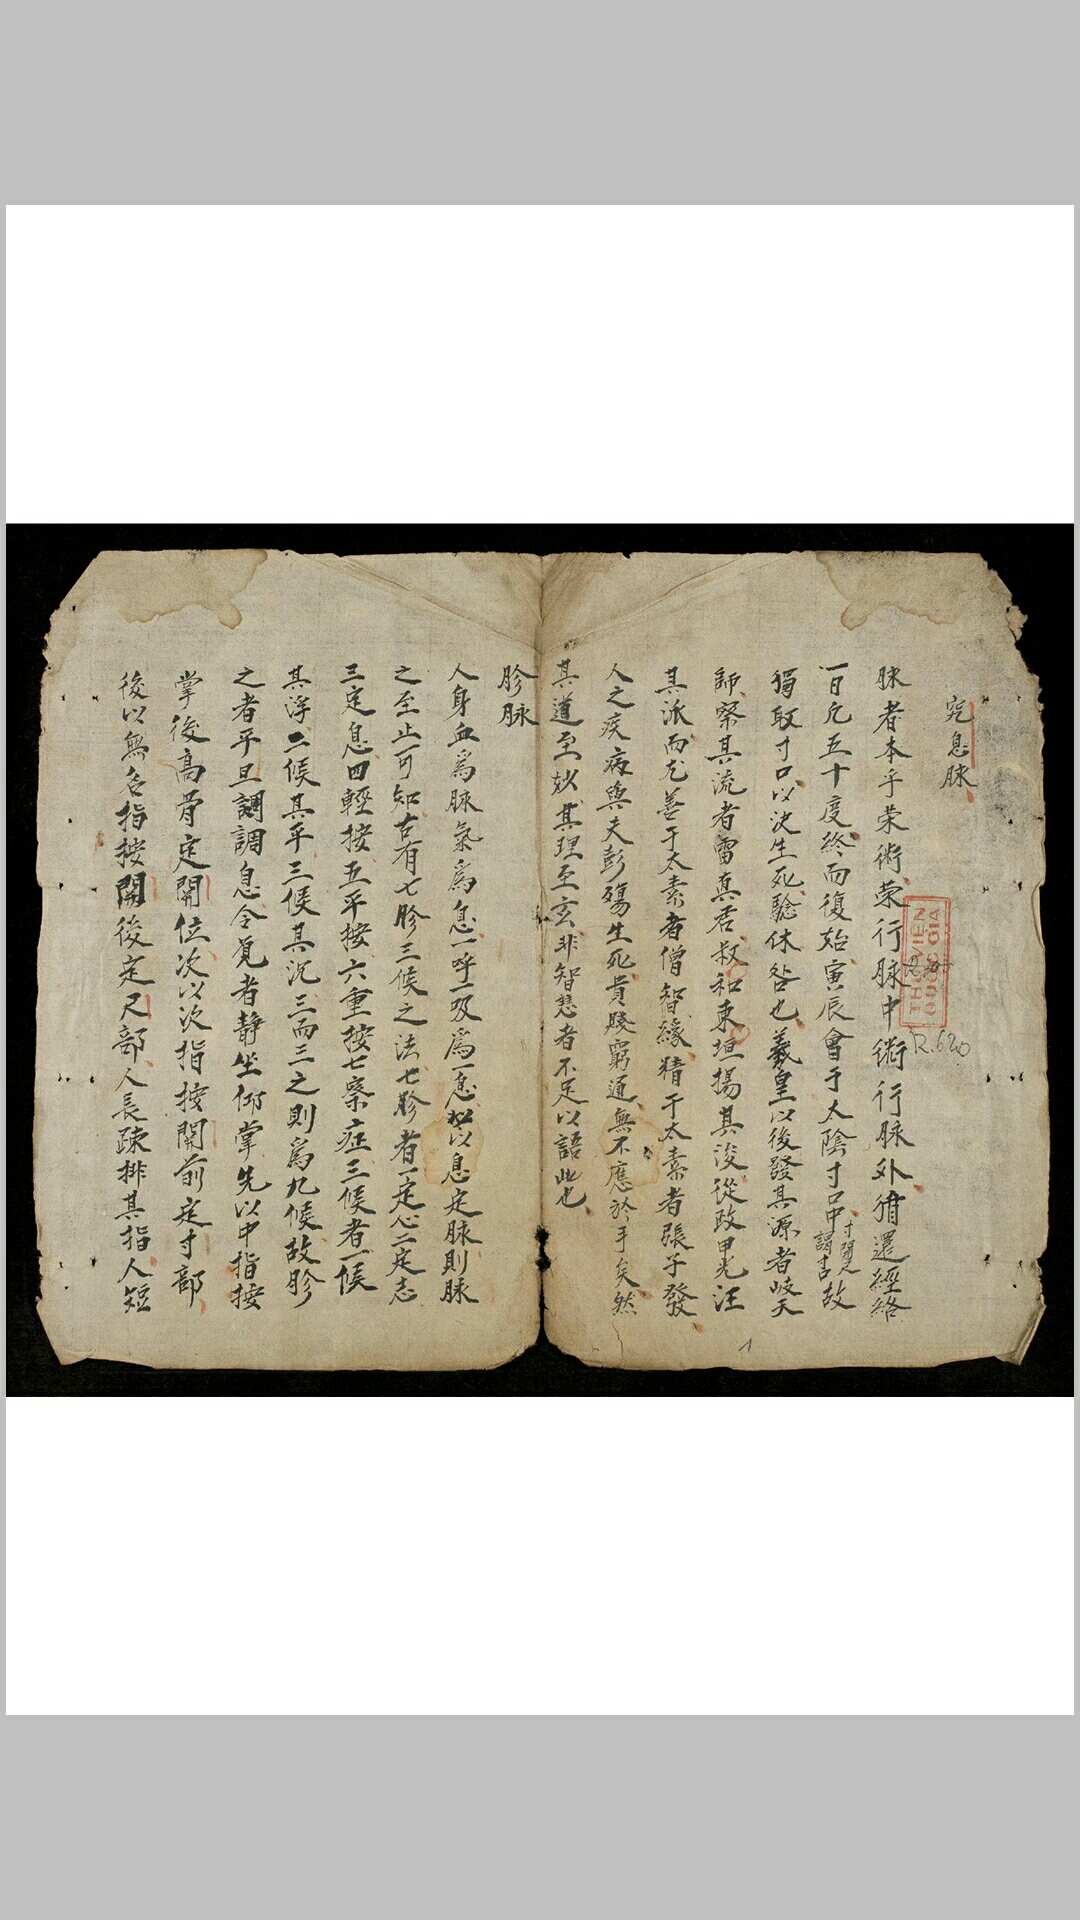 究息脉
脉者本乎荣術荣行脉中術行脉外循還經絡
一日凡五十度終而復始寅辰會于太陰寸口中寸関尺謂故
獨取寸口以决生死驗休咎也羲皇以後發其源者岐天
師察其流者雷真君叔和東垣揚其浚從政甲光汪
其派而尤善于太素者僧智緣精于太素者張子發
人之疾病與夫彭殤生死貴賤窮通無不應於手矣然
其道至妙其理至玄非智慧者不足以語此也
胗脉
人身血爲脉氣爲息一呼一吸爲一息以息定脉則脉
之至止可知古有七胗三候之法七胗者一定心二定志
三定息四輕按五平按六重按七察症三候者一候
其浮二候其平三候其沉三而三之則爲九候故胗
之者平旦調調息令覓者靜坐仰掌先以中指按
掌後高骨定関位次以次指按関前定寸部
後以無名指按関後定尺部人長疎排其指人短
THƯ VIỆN
QUỐC GIA
R.620
1